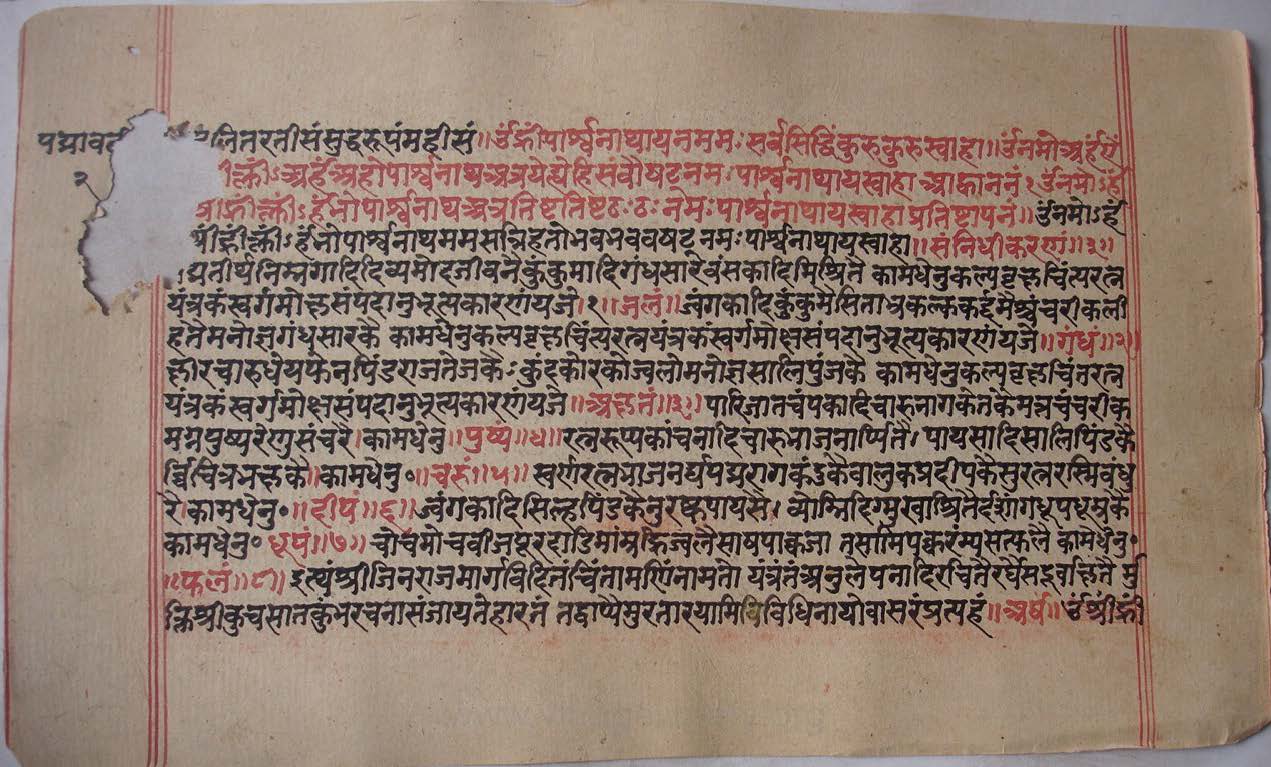 पद्मावत नितरतीसंमुद्दरुपंमहीसं॥ उँह्रीँपार्श्वनाथायनमममः सर्वसिद्धिंकुरुकुरुस्वाहा॥ उँनमोअर्हंयं
ह्रीँक्लीँऽअर्हंअहोपार्श्वनाथअत्रयेह्येहिसंवौषटनमः पार्श्वनाथायस्वाहा आह्वाननं१ उँनमोऽर्हं
ह्रीँक्लीँऽर्हंनोपार्श्वनाथअत्रतिष्टतिष्टठःठःनमःपार्श्वनाथायस्वाहाप्रतिष्टापनं॥ उँनमोऽर्हं
श्रीँह्रीँक्लीँऽर्हंनोपार्श्वनाथममसन्निहतोभवभववषटनमःपार्श्वनाथायस्वाहा॥ संनिधीकरणं॥३॥
द्यतीर्थनिम्नगादिदिव्यमोदजीवनैकुंकुमादिगंधसारचंसकादिमिश्रितै कामधैनुकल्पवृक्षचिंत्यरत्न
यंत्रकंस्वर्गमोक्षसंपदानुभूत्यकारणंयजे॥१॥जलं॥ ज्वंगकादिकुंकुमसिताभ्रकल्ककर्द्दमैश्चंचरीकली
हतैमनोज्ञगंधसारकै कामधैनुकल्पवृक्षचिंत्यरत्नयंत्रकंस्वर्गमोक्षसंपदानुभूत्यकारणंयजे॥गंधं॥२॥
क्षीरचारुधेयफेनपिंडराजतेजकैः कुंदकोरकोज्वलोमनोज्ञसालिपुंजकै कामधैनुकल्पवृक्षचिंतरत्न
यंत्रकंस्वर्गमोक्षसंपदानुभूत्यकारणंयजे॥अक्षतं॥३॥ पारिजातचंपकादिचारुनागकेतकैमत्रचंचरीक
मग्नपुष्परेणुसंचरै।कामधेनु॥पुष्पं॥४॥रत्नरूप्यकांचनादिचारुभाजनार्प्पितै। पायसादिसालिपिंडकै
र्विचित्रभक्षकै॥कामधेनु॰॥चरुं॥५॥ स्वर्णरत्नभाजनर्द्यपद्मरागकंडुकैवालुकप्रदीपकैसुरत्नरस्मिबंधु
रै।कामधेनु॰॥दीपं॥६॥ ज्वंगकादिसिल्हपिंडकैनुरष्कपायसै। व्योम्निदिग्मुखाश्रितैर्दशांगधूपधूम्रकै
कामधेनु॰धूपं॥७॥ चोचमोचबीजपूरदाडिमांम्रकिज्वलैसाषपाकजा तसामिपक्वरंम्यसत्फलै कामधेनु॰
॥फलं॥८॥ इत्यंश्रीजिनराजमार्गविदितंचिंतामणिंनामतो यंत्रंतंअनुलेपनादिरचितैरर्घेसदूर्वाक्षितै र्मु
क्तिश्रीकुचसातकुंभरचनासंजायतेहारतं तद्वाप्यैसुरतारयामिविधिनायोवासरंप्रत्यहं॥अर्घ॥ उँश्रीँह्रीँ